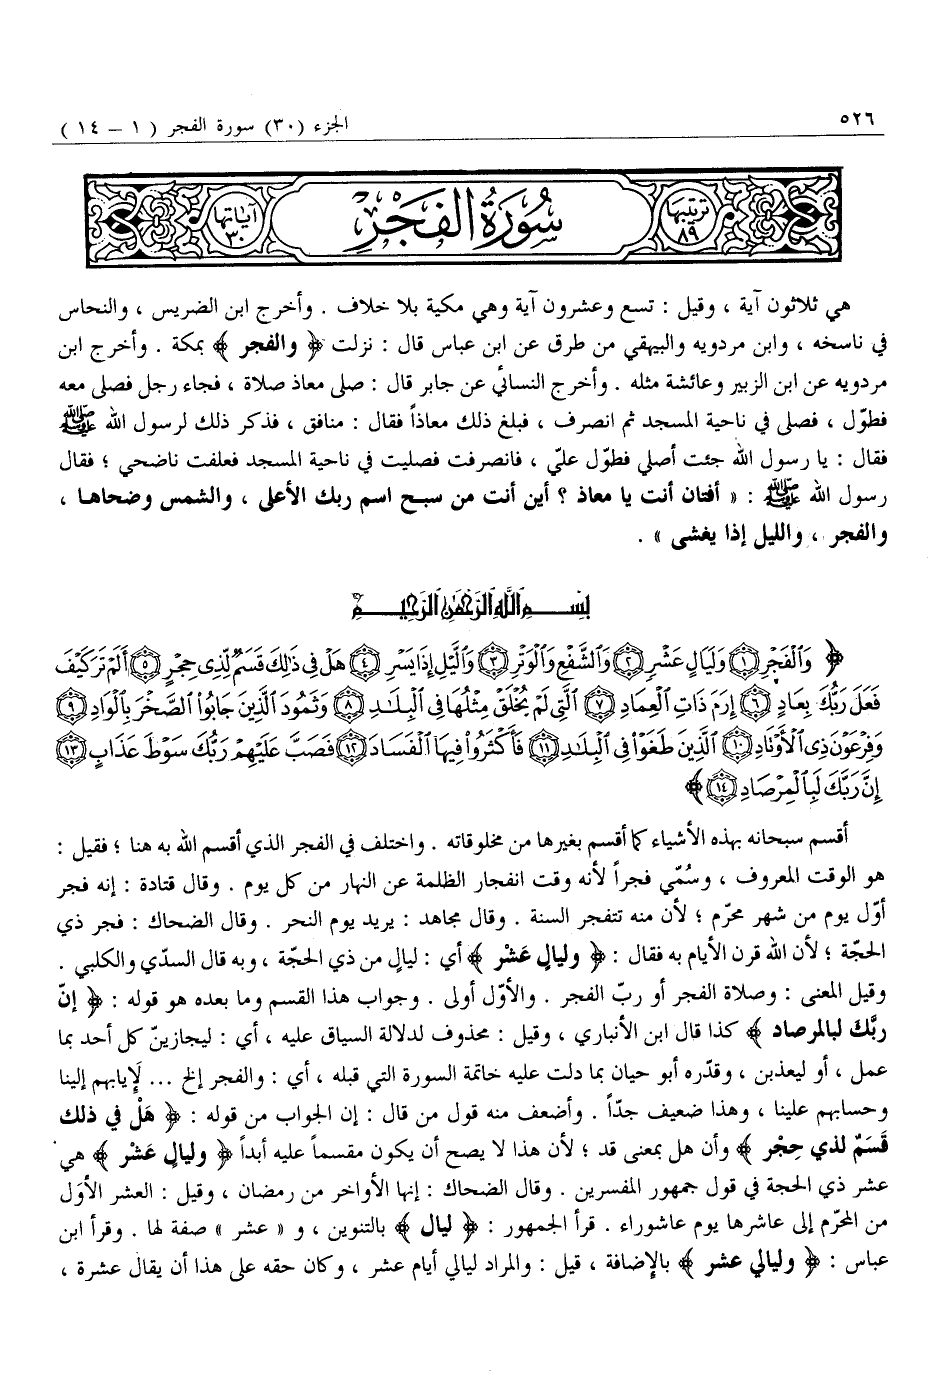 ٥٢٦
الجزء (٣٠) سورة الفجر ( ١ – ١٤ )
ترتيبها ٨٩
سُورَةُ الفَجْرِ
آياتها ٣٠
هي ثلاثون آية ، وقيل : تسع وعشرون آية وهي مكية بلا خلاف . وأخرج ابن الضريس ، والنحاس
في ناسخه ، وابن مردويه والبيهقي من طرق عن ابن عباس قال : نزلت ﴿ والفجر ﴾ بمكة . وأخرج ابن
مردويه عن ابن الزبير وعائشة مثله . وأخرج النسائي عن جابر قال : صلى معاذ صلاة ، فجاء رجل فصلى معه
فطوّل ، فصلى في ناحية المسجد ثم انصرف ، فبلغ ذلك معاذاً فقال : منافق ، فذكر ذلك لرسول الله ﷺ
فقال : يا رسول الله جئت أصلي فطوّل عليّ ، فانصرفت فصليت في ناحية المسجد فعلفت ناضحي ؛ فقال
رسول الله ﷺ : « أفتان أنت يا معاذ ؟ أين أنت من سبح اسم ربك الأعلى ، والشمس وضحاها ،
والفجر ، والليل إذا يغشى » .
بِسْمِ اللَّهِ الرَّحْمَٰنِ الرَّحِيمِ
﴿ وَالْفَجْرِ ۝١ وَلَيَالٍ عَشْرٍ ۝٢ وَالشَّفْعِ وَالْوَتْرِ ۝٣ وَاللَّيْلِ إِذَا يَسْرِ ۝٤ هَلْ فِي ذَٰلِكَ قَسَمٌ لِّذِي حِجْرٍ ۝٥ أَلَمْ تَرَ كَيْفَ
فَعَلَ رَبُّكَ بِعَادٍ ۝٦ إِرَمَ ذَاتِ الْعِمَادِ ۝٧ الَّتِي لَمْ يُخْلَقْ مِثْلُهَا فِي الْبِلَٰدِ ۝٨ وَثَمُودَ الَّذِينَ جَابُوا الصَّخْرَ بِالْوَادِ ۝٩
وَفِرْعَوْنَ ذِي الْأَوْتَادِ ۝١٠ الَّذِينَ طَغَوْا فِي الْبِلَٰدِ ۝١١ فَأَكْثَرُوا فِيهَا الْفَسَادَ ۝١٢ فَصَبَّ عَلَيْهِمْ رَبُّكَ سَوْطَ عَذَابٍ ۝١٣
إِنَّ رَبَّكَ لَبِالْمِرْصَادِ ۝١٤ ﴾
أقسم سبحانه بهذه الأشياء كما أقسم بغيرها من مخلوقاته . واختلف في الفجر الذي أقسم الله به هنا ؛ فقيل :
هو الوقت المعروف ، وسُمّي فجراً لأنه وقت انفجار الظلمة عن النهار من كل يوم . وقال قتادة : إنه فجر
أوّل يوم من شهر محرّم ؛ لأن منه تتفجر السنة . وقال مجاهد : يريد يوم النحر . وقال الضحاك : فجر ذي
الحجّة ؛ لأن الله قرن الأيام به فقال : ﴿ وليالٍ عَشْر ﴾ أي : ليالٍ من ذي الحجّة ، وبه قال السدّي والكلبي .
وقيل المعنى : وصلاة الفجر أو ربّ الفجر . والأوّل أولى . وجواب هذا القسم وما بعده هو قوله : ﴿ إنّ
ربَّكَ لبالمرصاد ﴾ كذا قال ابن الأنباري ، وقيل : محذوف لدلالة السياق عليه ، أي : ليجازينّ كل أحد بما
عمل ، أو ليعذبن ، وقدّره أبو حيان بما دلت عليه خاتمة السورة التي قبله ، أي : والفجر إلخ ... لَإيابهم إلينا
وحسابهم علينا ، وهذا ضعيف جدّاً . وأضعف منه قول من قال : إن الجواب من قوله : ﴿ هَلْ في ذلك
قَسَمٌ لذي حِجْر ﴾ وأن هل بمعنى قد ؛ لأن هذا لا يصح أن يكون مقسماً عليه أبداً ﴿ وليالٍ عَشْر ﴾ هي
عشر ذي الحجة في قول جمهور المفسرين . وقال الضحاك : إنها الأواخر من رمضان ، وقيل : العشر الأوَل
من المحرّم إلى عاشرها يوم عاشوراء . قرأ الجمهور : ﴿ ليال ﴾ بالتنوين ، و « عشر » صفة لها . وقرأ ابن
عباس : ﴿ وليالي عشر ﴾ بالإضافة ، قيل : والمراد ليالي أيام عشر ، وكان حقه على هذا أن يقال عشرة ،